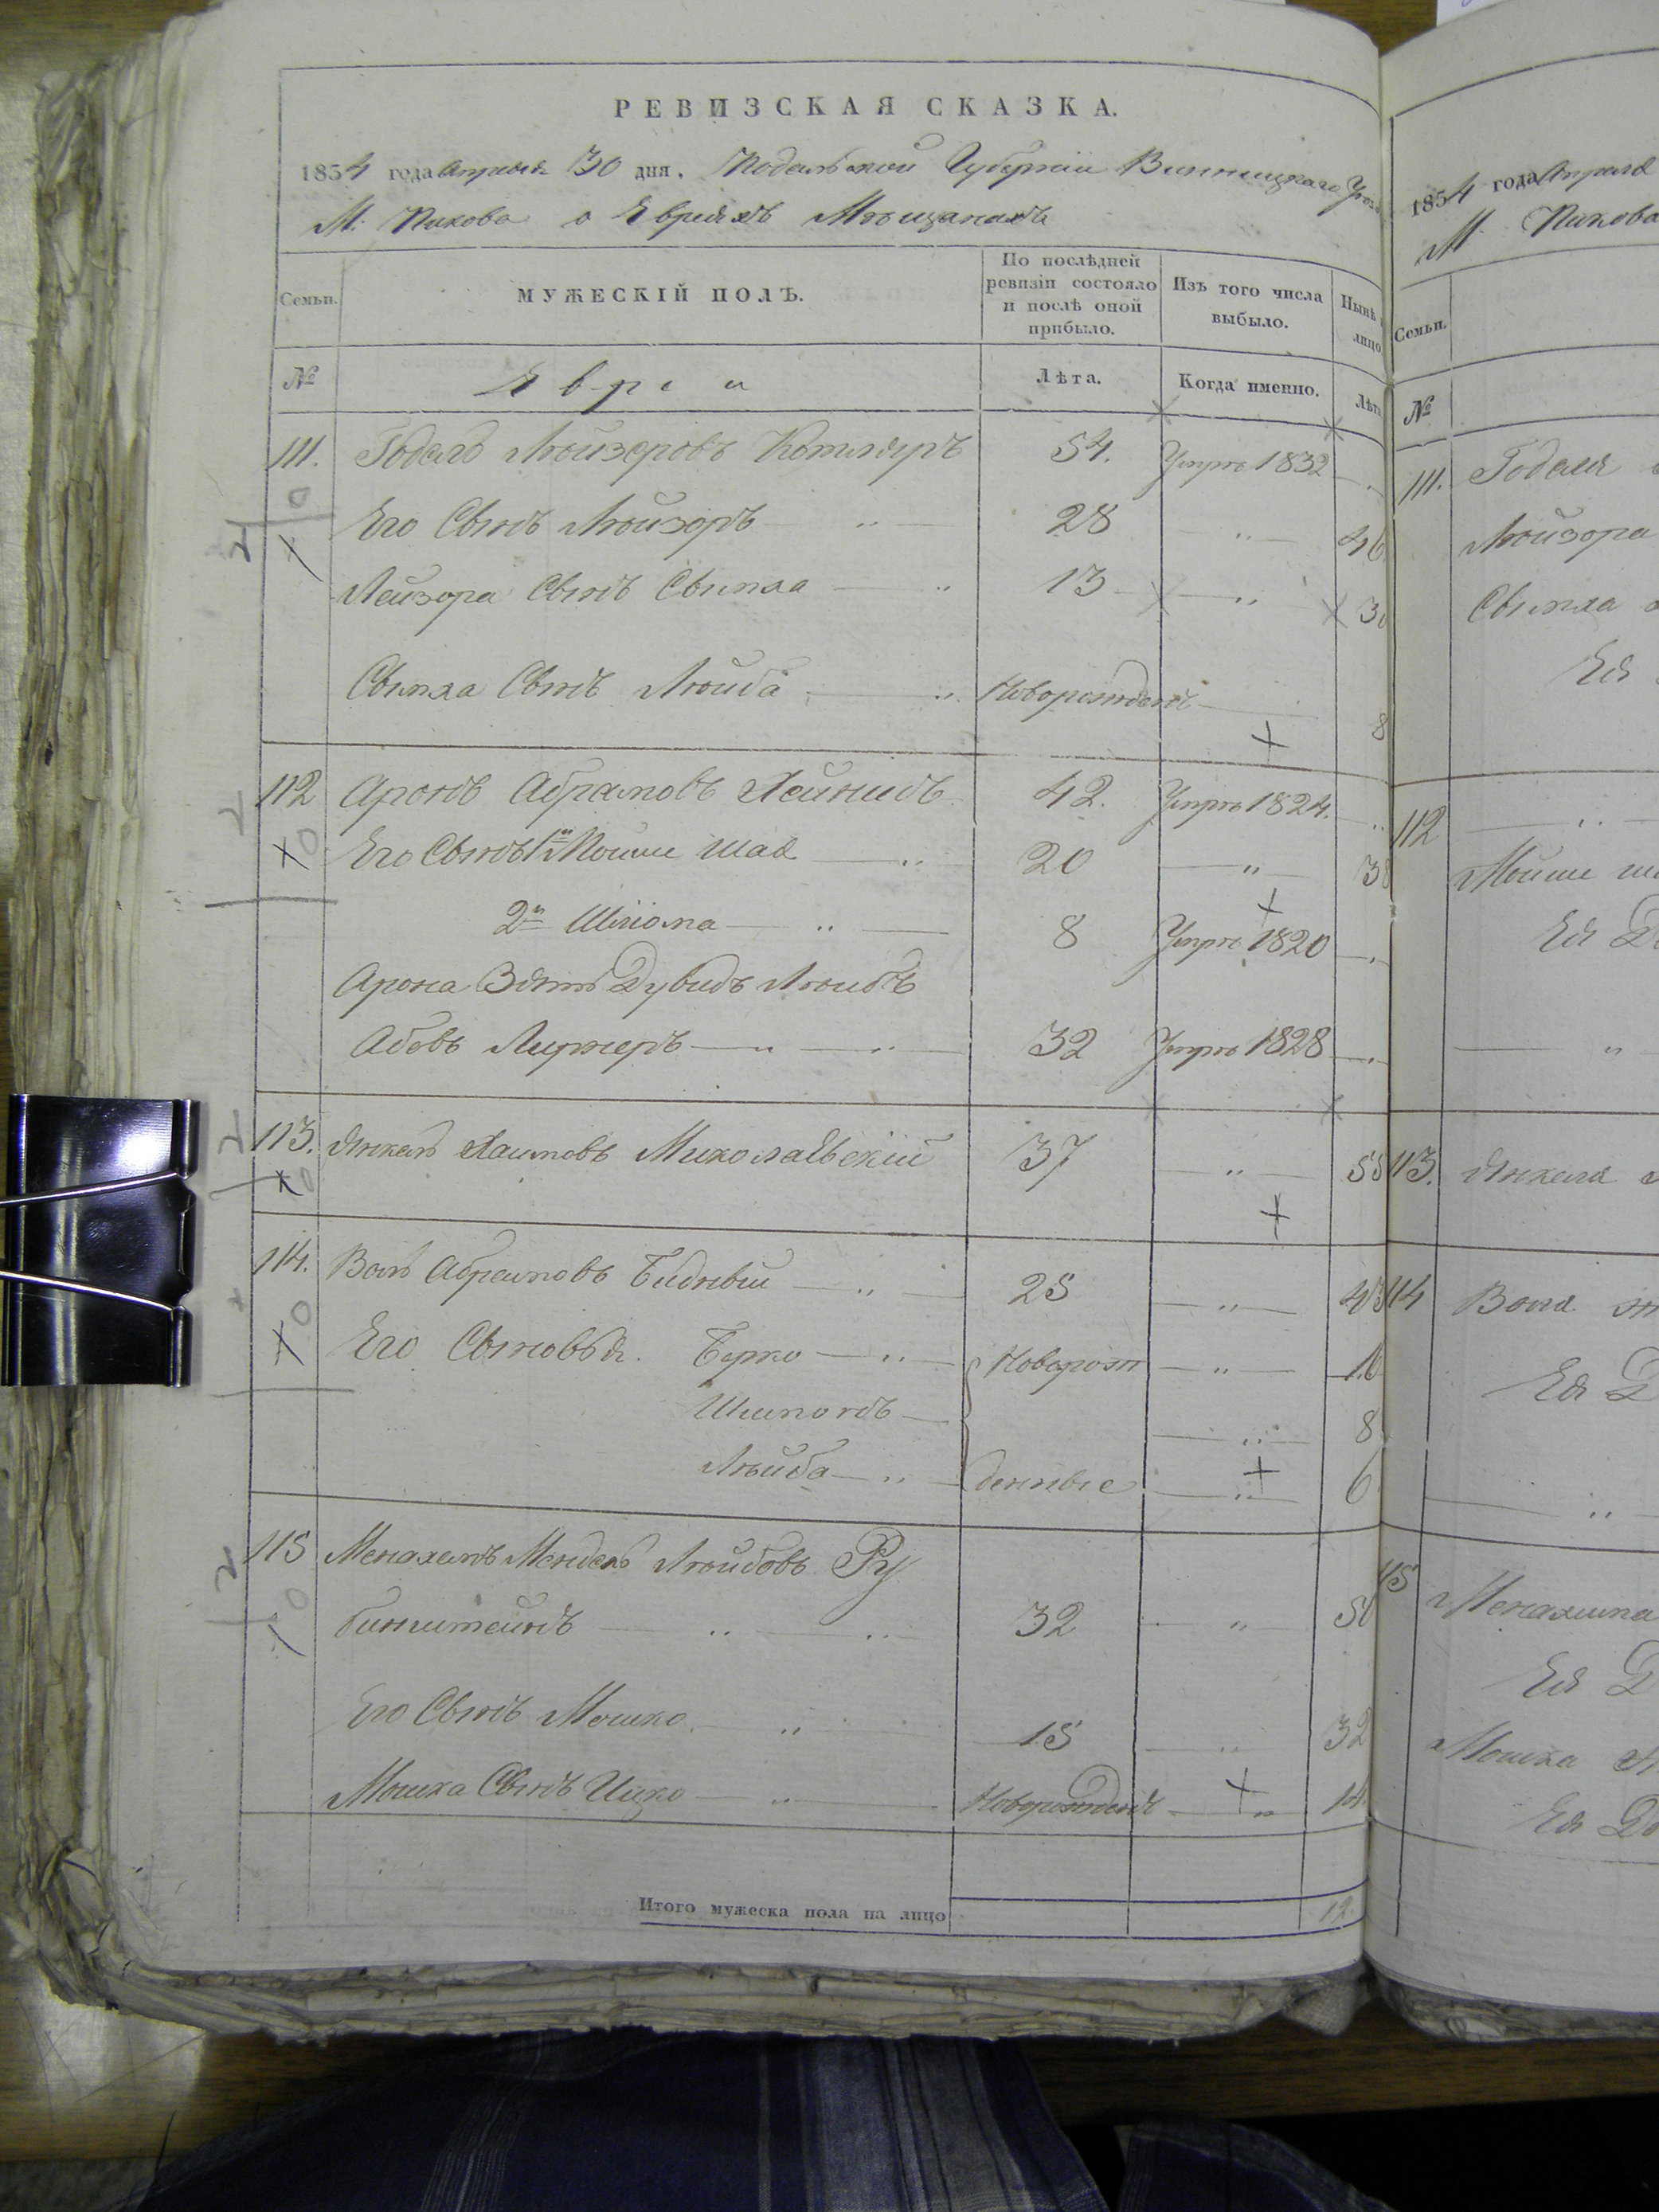 РЕВИЗСКАЯ СКАЗКА.
1854 года Апреля 30 дня. Подольской Губернии Винницкаго Уезда
М: Пикова о Евреяхъ Мѣщанахъ
Семьи.
МУЖЕСКІЙ ПОЛЪ.
По послѣдней ревизіи состояло и послѣ оной прибыло.
Изъ того числа выбыло.
Нынѣ лицо
№
Евреи
Лѣта.
Когда именно.
Лѣта
111. Годель Лейзеровъ Котляръ 54. Умръ 1832
Его Сынъ Лейзоръ 28 46
Лейзора Сынъ Сымха 13 30
Сымха Сынъ Лейба Новорожденъ 8
112 Аронъ Абрамовъ 42. Умръ 1824.
Его Сынъ 1й Мойше 20 38
2й Шлома 8 Умръ 1820
Арона Зять Дувидъ Лейбъ
32 Умръ 1828
113. Янкель Хаимовъ Миколаевскій 37 55
114. Воль Абрамовъ Бидный 25 43
Его Сыновья. Берко Новорож 16
Шимонъ 8
Лейба денные 6
115 Менахемъ Мендель Лейбовъ Ру
бинштейнъ 32 50
Его Сынъ Мошко 15 32
Мошка Сынъ Ицко Новорожденъ 14
Итого мужеска пола на лицо 12
1854 года Апреля
М. Пикова
Семьи.
№
111. Годеля
Лейзора
Сымха
Ея
112
Мойше
Ея
113. Янкеля
114 Воля
Ея Д
115
Менахима
Ея Д
Мошка
Ея До